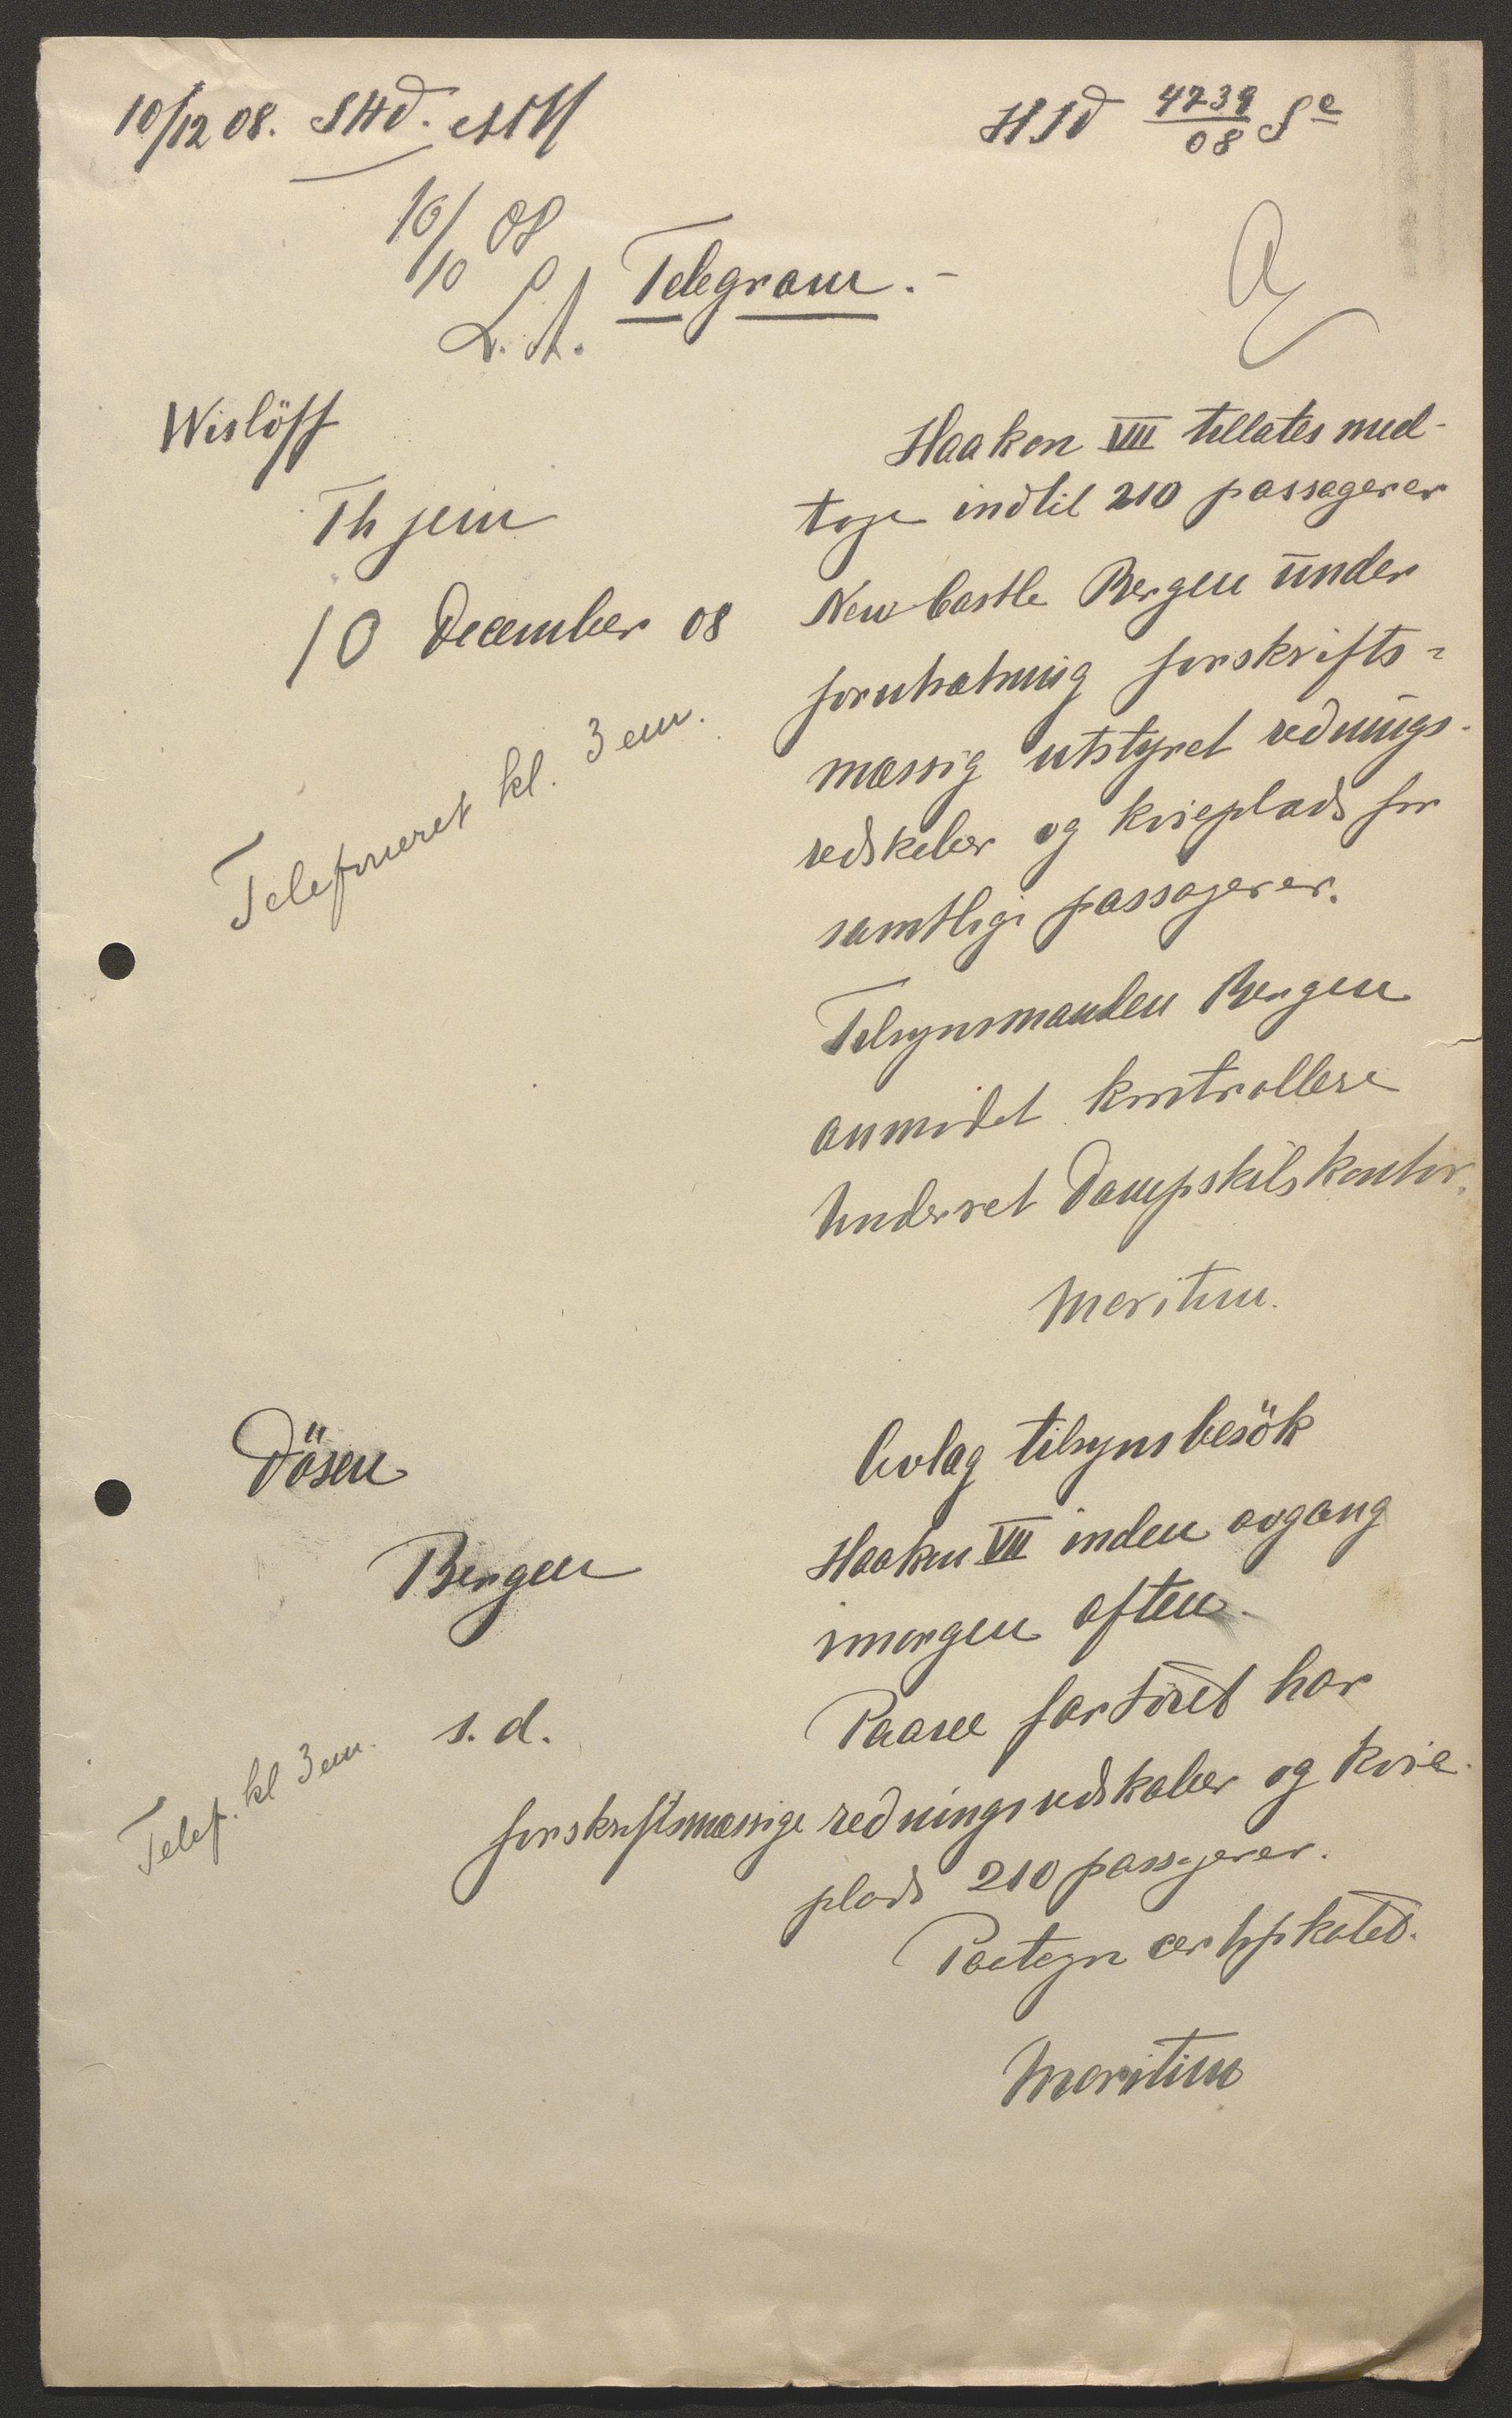 10/12 08. SHd.
HSd 4239/08 Se
10/10 08
L. A.
Telegram.-
Wislöff
Thjem
10 December 08
Telefoneret kl. 3 em.
Haakon VII tillates med-
tage indtil 210 passagerer
New Castle Bergen under
forutsætning forskrifts-
mæssig utstyret rednings-
redskaber og köieplads for
samtlige passagerer.
Tilsynsmanden Bergen
anmodet kontrollere
Underret Dampskibskontor.
Maritim.
Dösen
Bergen
s. d.
Telef. kl 3 em.
Avlæg tilsynsbesök
Haakon VII inden avgang
imorgen aften.
Paase fartöiet har
forskriftsmæssige redningsredskaber og köie-
plads 210 passagerer.
Paategn certifikatet.
Maritim